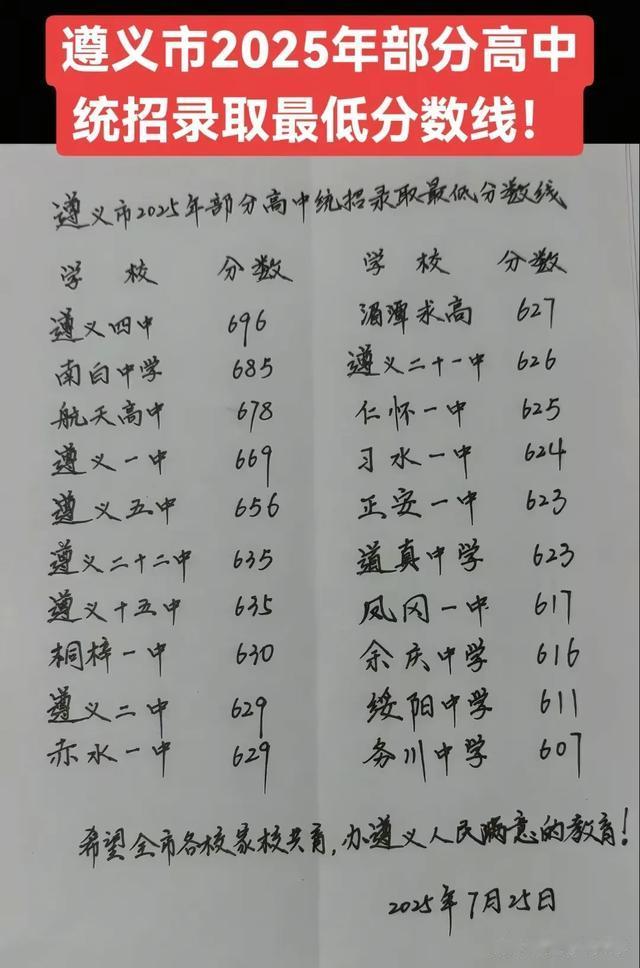 遵义市2025年部分高中
统招录取最低分数线!
遵义市2025年部分高中统招录取最低分数线
学校 分数 学校 分数
遵义四中 696 湄潭求高 627
南白中学 685 遵义二十一中 626
航天高中 678 仁怀一中 625
遵义一中 669 习水一中 624
遵义五中 656 正安一中 623
遵义二十二中 635 道真中学 623
遵义十五中 635 凤冈一中 617
桐梓一中 630 余庆中学 616
遵义二中 629 绥阳中学 611
赤水一中 629 务川中学 607
希望全市各校家校共育,办遵义人民满意的教育!
2025年7月25日